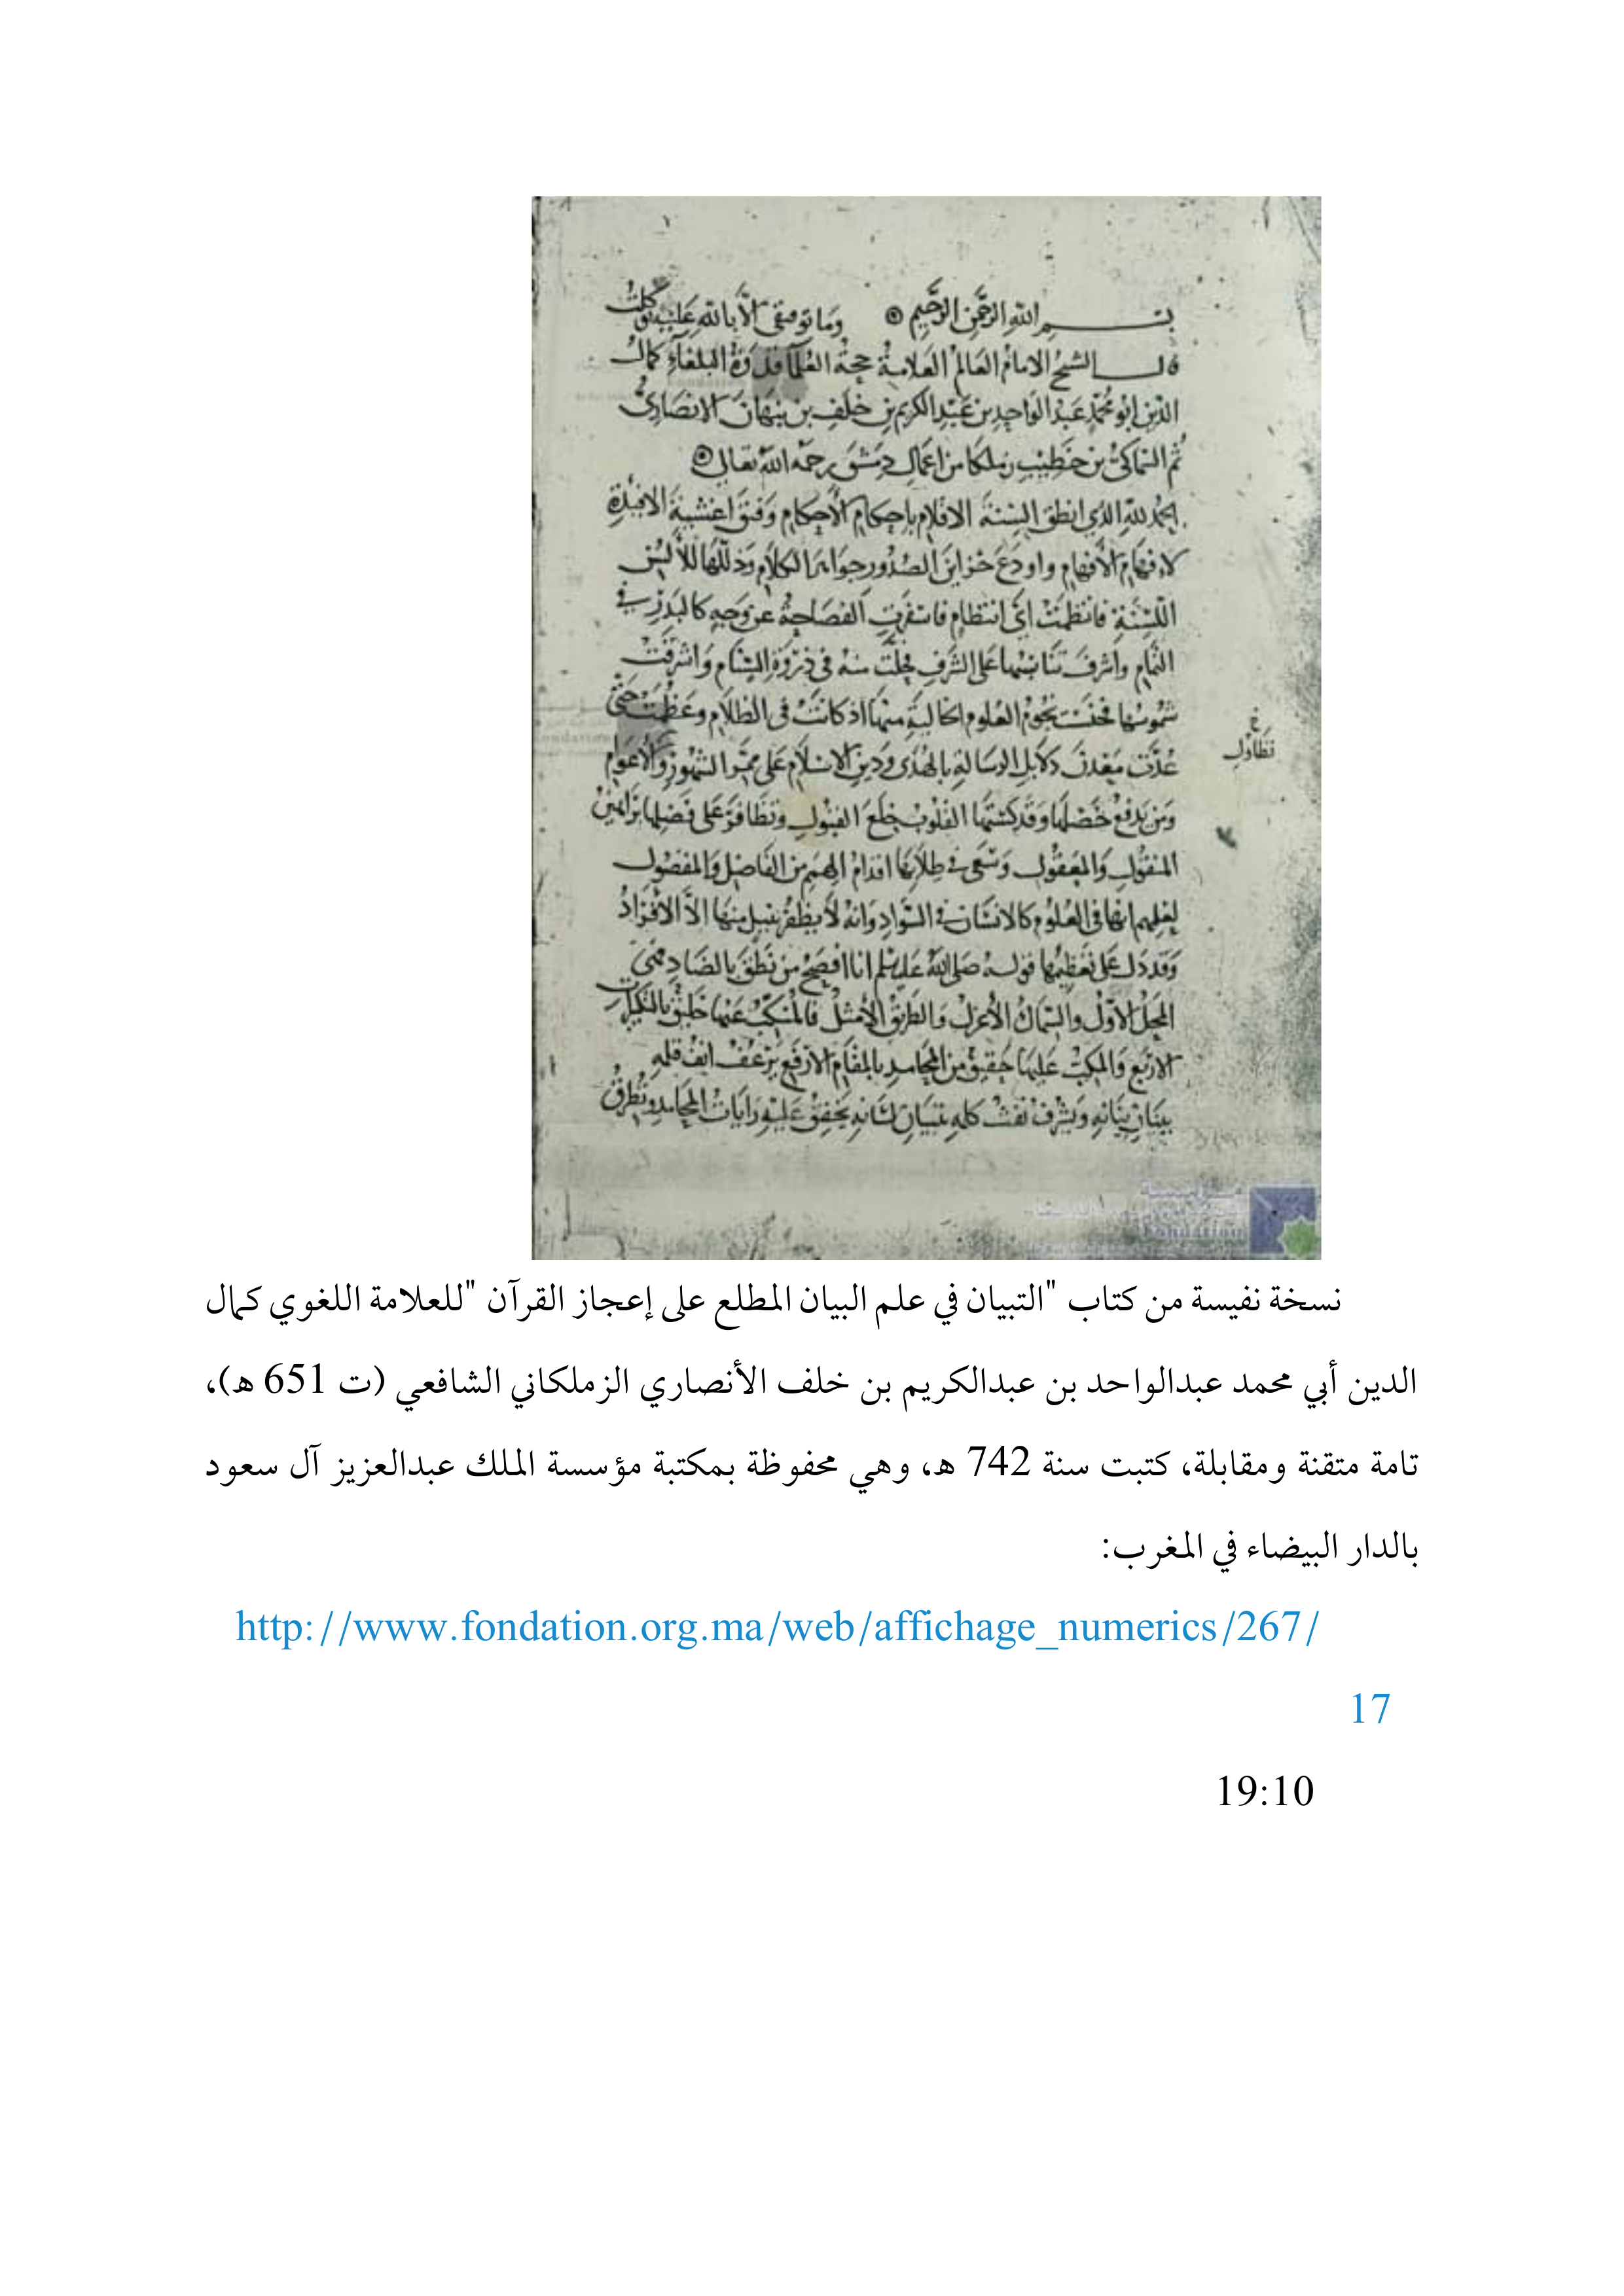 بسم الله الرحمن الرحيم وما توفيقي الا بالله عليه توكلت
قال الشيخ الامام العالم العلامة حجة العلما قدوة البلغاء كمال
الدين ابو محمد عبد الواحد بن عبد الكريم بن خلف بن نبهان الانصارى
ثم السماكي بن خطيب زملكا من اعمال دمشق رحمه الله تعالى
الحمد لله الذي انطق السنة الاقلام باحكام الأحكام وفتق اغشية الافئدة
لافهام الأفهام واودع خزاين الصدور جواهر الكلام وذللها للألسن
اللسنة فانتظمت اي انتظام فاسفرت الفصاحة عن وجه كالبدر في
التمام واشرف تناسبها على الشرف فحلت منه في ذروة السنام واشرقت
شموسها فخفت نجوم العلوم الخالية منها اذ كانت في الظلام وعظمت حتى
عُدّت معدن دلايل الرسالة بالهدى ودين الاسلام على ممر الشهور والاعوام
تطاول
ومن يدفع خصلها وقد كستها القلوب خلع القبول وتظافر على فضلها براهين
المنقول والمعقول وسعى في طلابها اقدام الهمم من الفاضل والمفضول
لعلمهم انها في العلوم كالانسان في السواد وانه لا يظفر بنيل منها الا الافراد
وقد دل على تعظيمها قوله صلى الله عليه وسلم انا افصح من نطق بالضاد فهي
المحل الاول والسماك الأعزل والطريق الأمثل فالمنكب عنها خليق بالتكبيرات
الاربع والمكب عليها حقيق من المحامد بالمقام الارفع يرعف انف قلمه
ببنان بيانه ويشرف نفث كلمه بتبيان لسانه يخفق عليه رايات المحامد وتطرق
Fondation
نسخة نفيسة من كتاب "التبيان في علم البيان المطلع على إعجاز القرآن "للعلامة اللغوي كمال
الدين أبي محمد عبدالواحد بن عبدالكريم بن خلف الأنصاري الزملكاني الشافعي (ت 651 ه)،
تامة متقنة ومقابلة، كتبت سنة 742 ه، وهي محفوظة بمكتبة مؤسسة الملك عبدالعزيز آل سعود
بالدار البيضاء في المغرب:
http://www.fondation.org.ma/web/affichage_numerics/267/
17
19:10